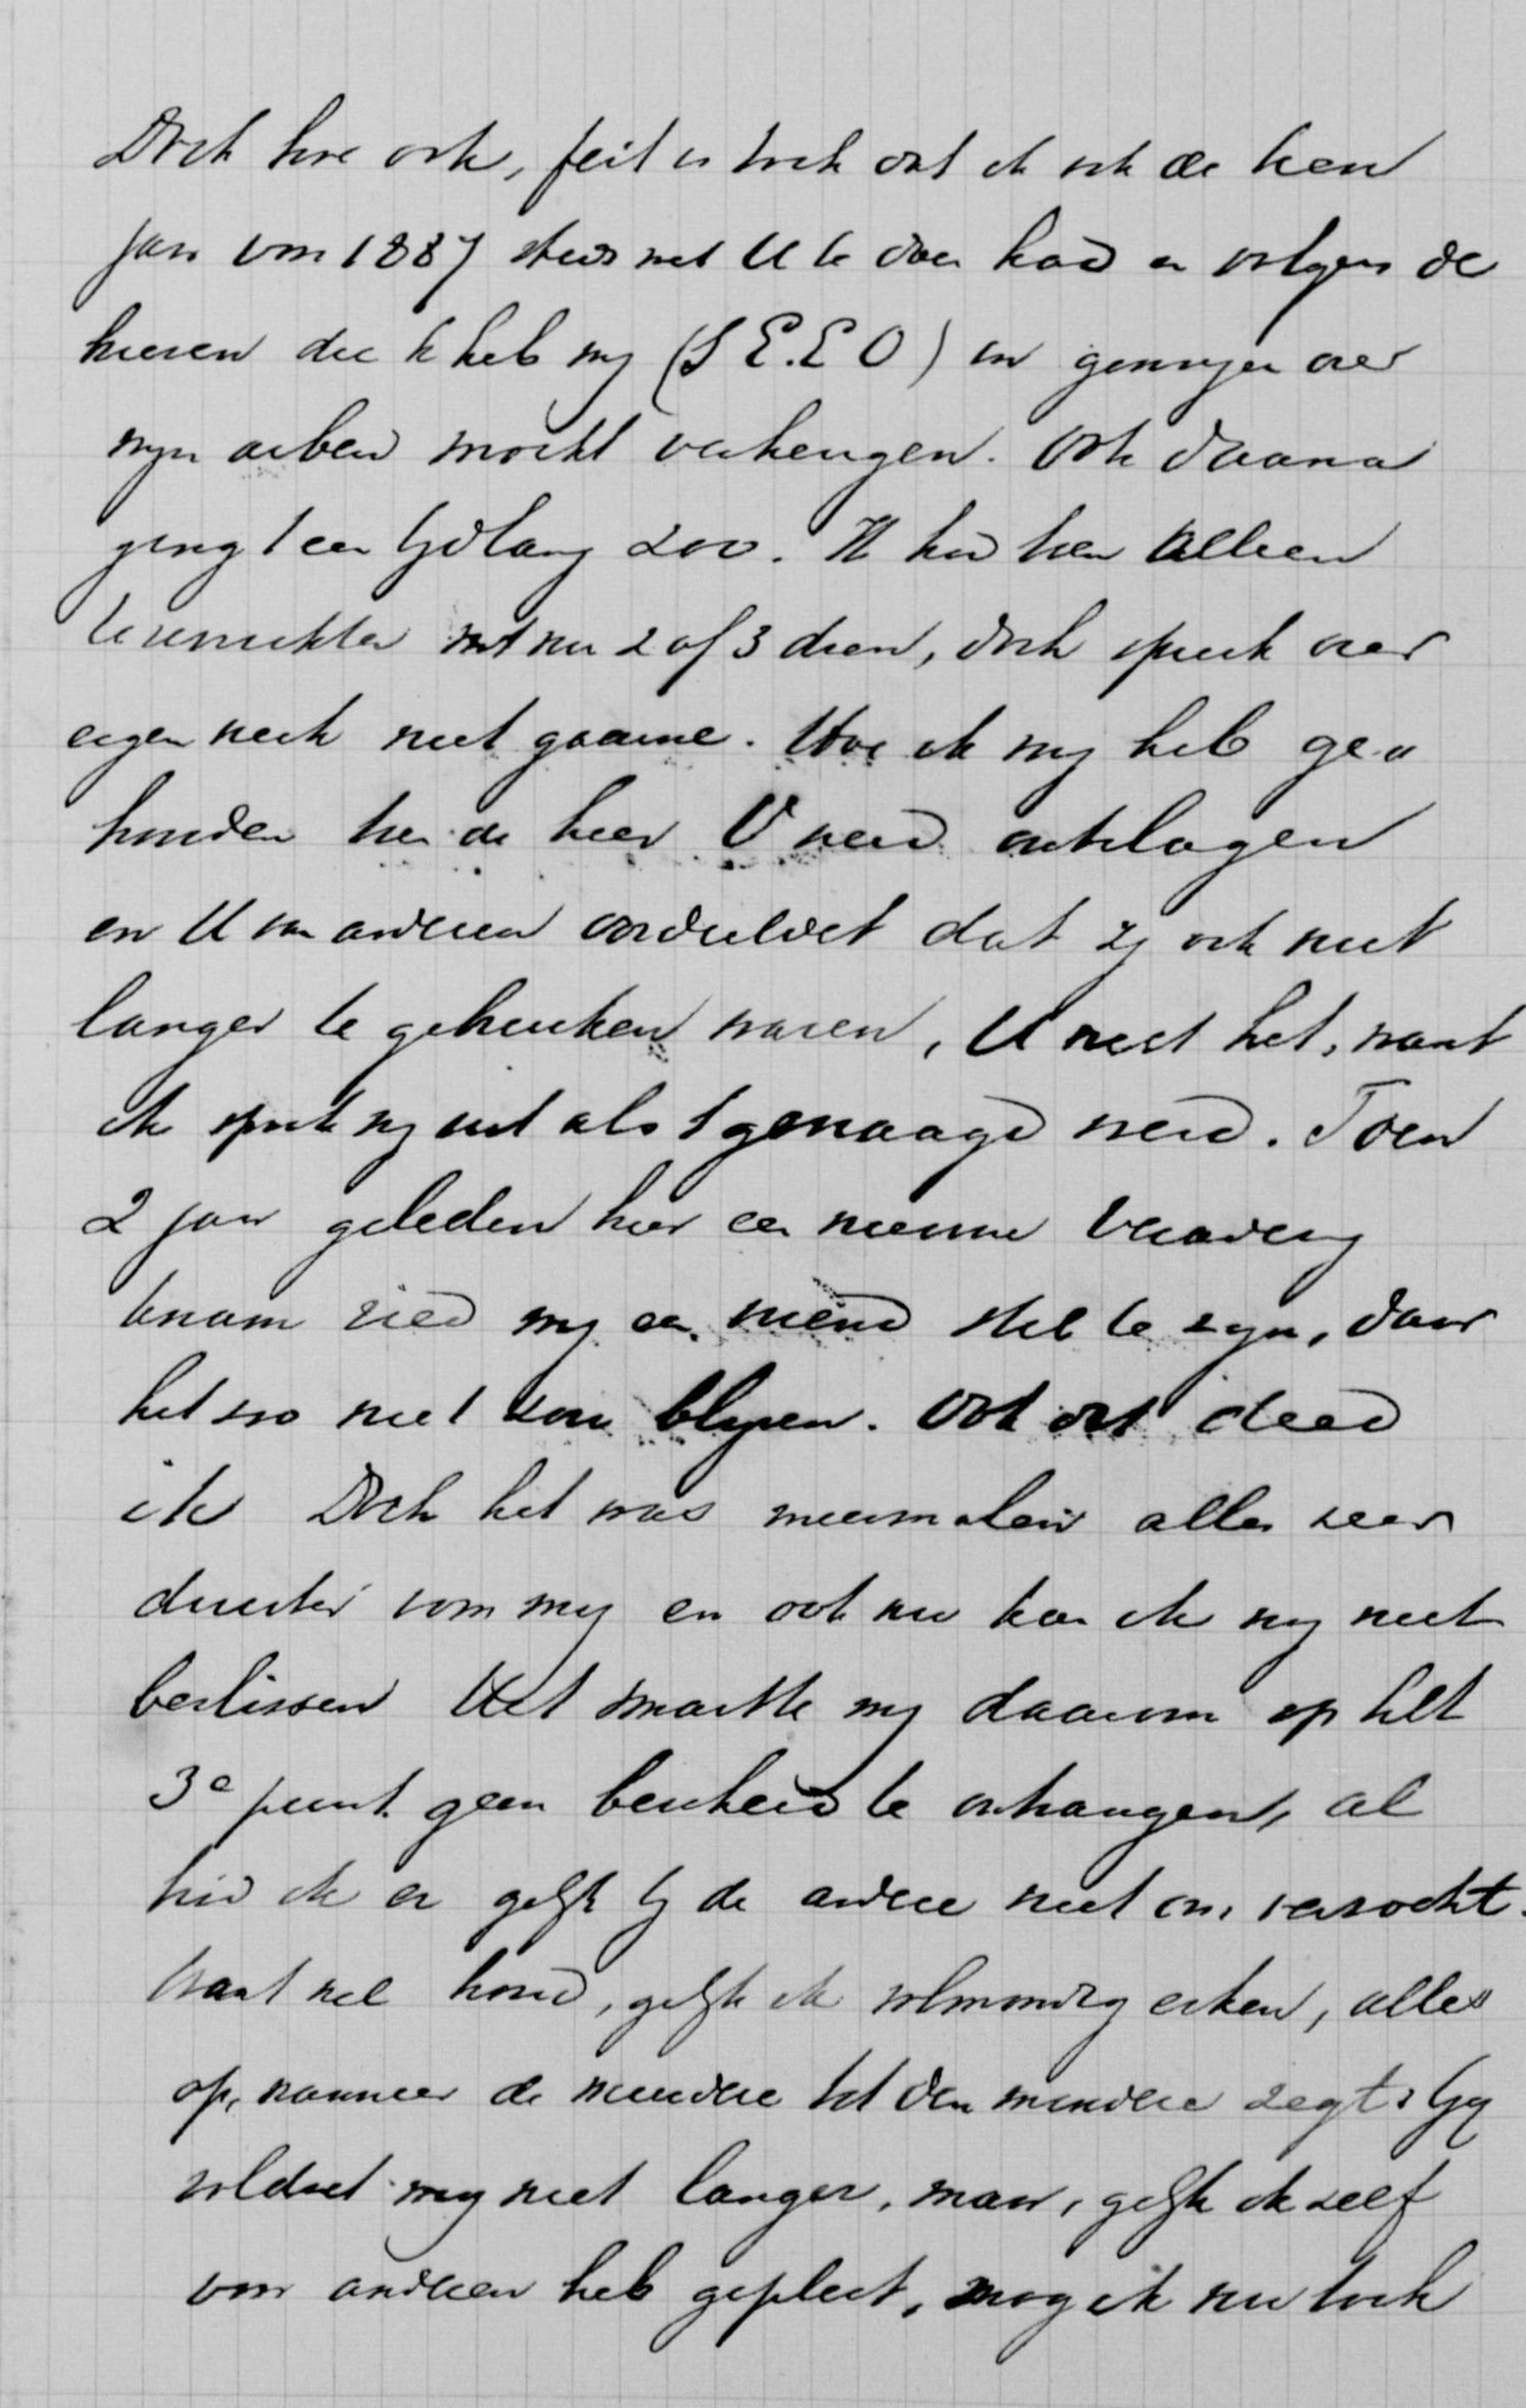 Doch hoe ook, feit is toch dat ik ook de heer
jaar van 1887 steeds met U te doen had en volgens de
brieven die ik heb mij (S E. E O) in genoegen over
mijn arbeid mocht verheugen. Ook daarna
ging 't een tijdlang zoo. Ik had toen alleen
met nu 2 of 3 dien, doch spreek over
eigen werk niet gaarne. Hoe ik mij heb ge-
houden toen de heer V werd ontslagen
en U van anderen oordeeldet dat zij ook niet
langer te gebruiken waren, U weet het, want
ik sprak mij uit als 't gevraagd werd. Toen
2 jaar geleden hier een nieuwe
kwam ried mij een vriend stil te zijn, daar
het zoo niet zou blijven. Ook dat deed
ik Doch het was meermalen alles zeer
duister voor mij en ook nu kan ik nog niet
beslissen Het smartte mij daarom op het
3e punt geen bescheid te ontvangen, al
had ik er gelijk bij de andere niet om verzocht.
Want wel houd, gelijk ik volmondig erken, alles
op, wanneer de meerdere tot den mindere zegt: Gij
voldoet mij niet langer, maar, gelijk ik zelf
voor anderen heb gepleit, mag ik nu toch